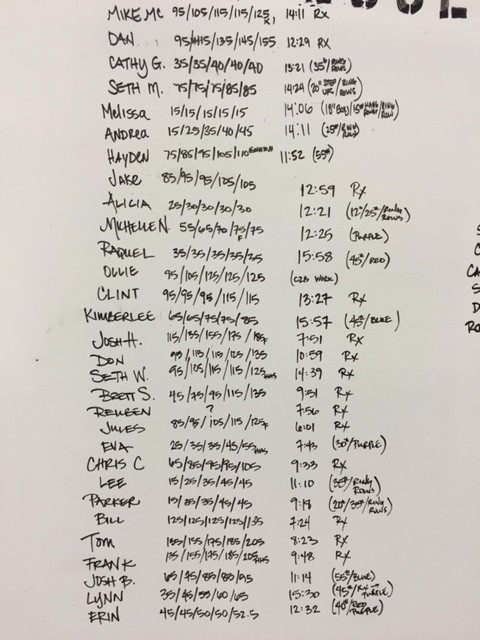 MIKE MC 95/105/115/115/125 14:11 RX
DAN 95/115/135/145/155 12:29 RX
CATHY G. 35/35/40/40/40 13:21 (35#/RING ROWS)
SETH M. 75/75/75/85/85 14:24 (20" STEP UPS/RING ROWS)
Melissa 15/15/15/15/15 14:06
ANDREA 15/25/35/40/45 14:11 (25#/RING ROWS)
HAYDEN 75/85/95/105/110 11:52 (55#)
JAKE 85/95/95/105/105 12:59 RX
ALICIA 25/30/30/30/30 12:21 (12"/25#/RING ROWS)
MICHELLE N 55/65/70/75/75 F 12:25 (PURPLE)
RAQUEL 35/35/35/35/35 15:58 (45#/RED)
OLLIE 95/105/125/125/125
CLINT 95/95/95/115/115 13:27 RX
KIMBERLEE 65/65/75/75/85 15:57 (45#/BLUE)
JOSH H. 115/135/155/175/185F 7:51 RX
DON 95/115/115/125/135 10:59 RX
SETH W. 95/105/115/115/125 14:39 RX
BRETT S. 45/75/95/115/135 9:51 RX
REUBEN ? 7:56 RX
JULES 85/95/105/115/125F 6:01 RX
EVA 25/35/35/45/55 7:43 (30#/PURPLE)
CHRIS C 65/85/95/95/105 9:33 RX
LEE 15/25/35/45/45 11:10 (35#/RING ROWS)
PARKER 15/25/35/45/45 9:18 (20"/35#/RING ROWS)
BILL 125/125/125/125/135 7:24 RX
TOM 135/155/175/185/205 8:23 RX
FRANK 135/155/175/185/205 9:48 RX
JOSH B. 65/75/85/85/95 11:14 (55#/BLUE)
LYNN 35/45/55/60/65 15:30
ERIN 45/45/50/50/52.5 12:32 (40#/RED PURPLE)